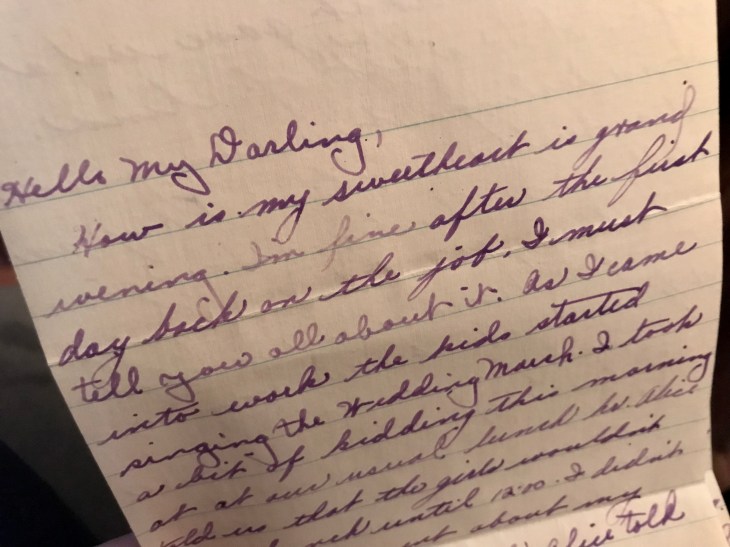 Hello My Darling,
How is my sweetheart is grand
evening. I'm fine after the first
day back on the job. I must
tell you all about it. As I came
into work the kids started
singing the Wedding March. I took
a bit of kidding this morning
at at our usual lunch hr. Alice
told us that the girls wouldn't
until 12:00. I didn't
about my
Alice told